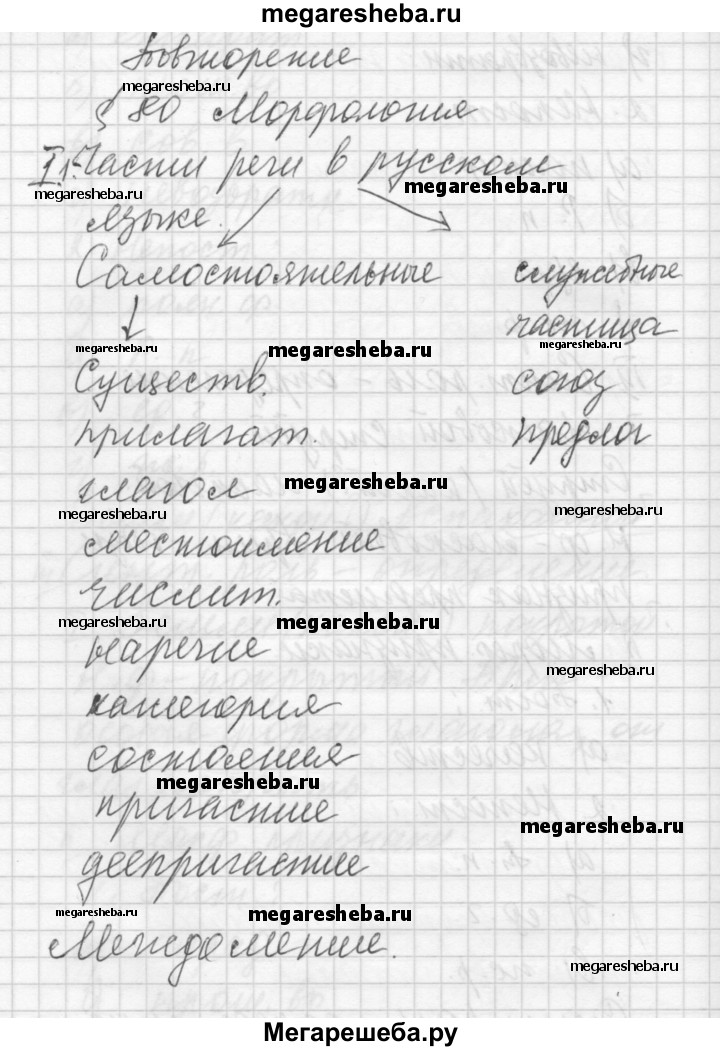 megaresheba.ru
Повторение
megaresheba.ru
§ 80 Морфология
I 1. Части речи в русском
megaresheba.ru
языке.
Самостоятельные служебные
частица
megaresheba.ru megaresheba.ru megaresheba.ru
Существ. союз
прилагат. предлог
глагол megaresheba.ru
megaresheba.ru megaresheba.ru
местоимение
числит.
megaresheba.ru megaresheba.ru
наречие
megaresheba.ru
категория
состояния
megaresheba.ru
причастие
megaresheba.ru
деепричастие
megaresheba.ru megaresheba.ru
Междометие.
megaresheba.ru
Мегарешеба.ру